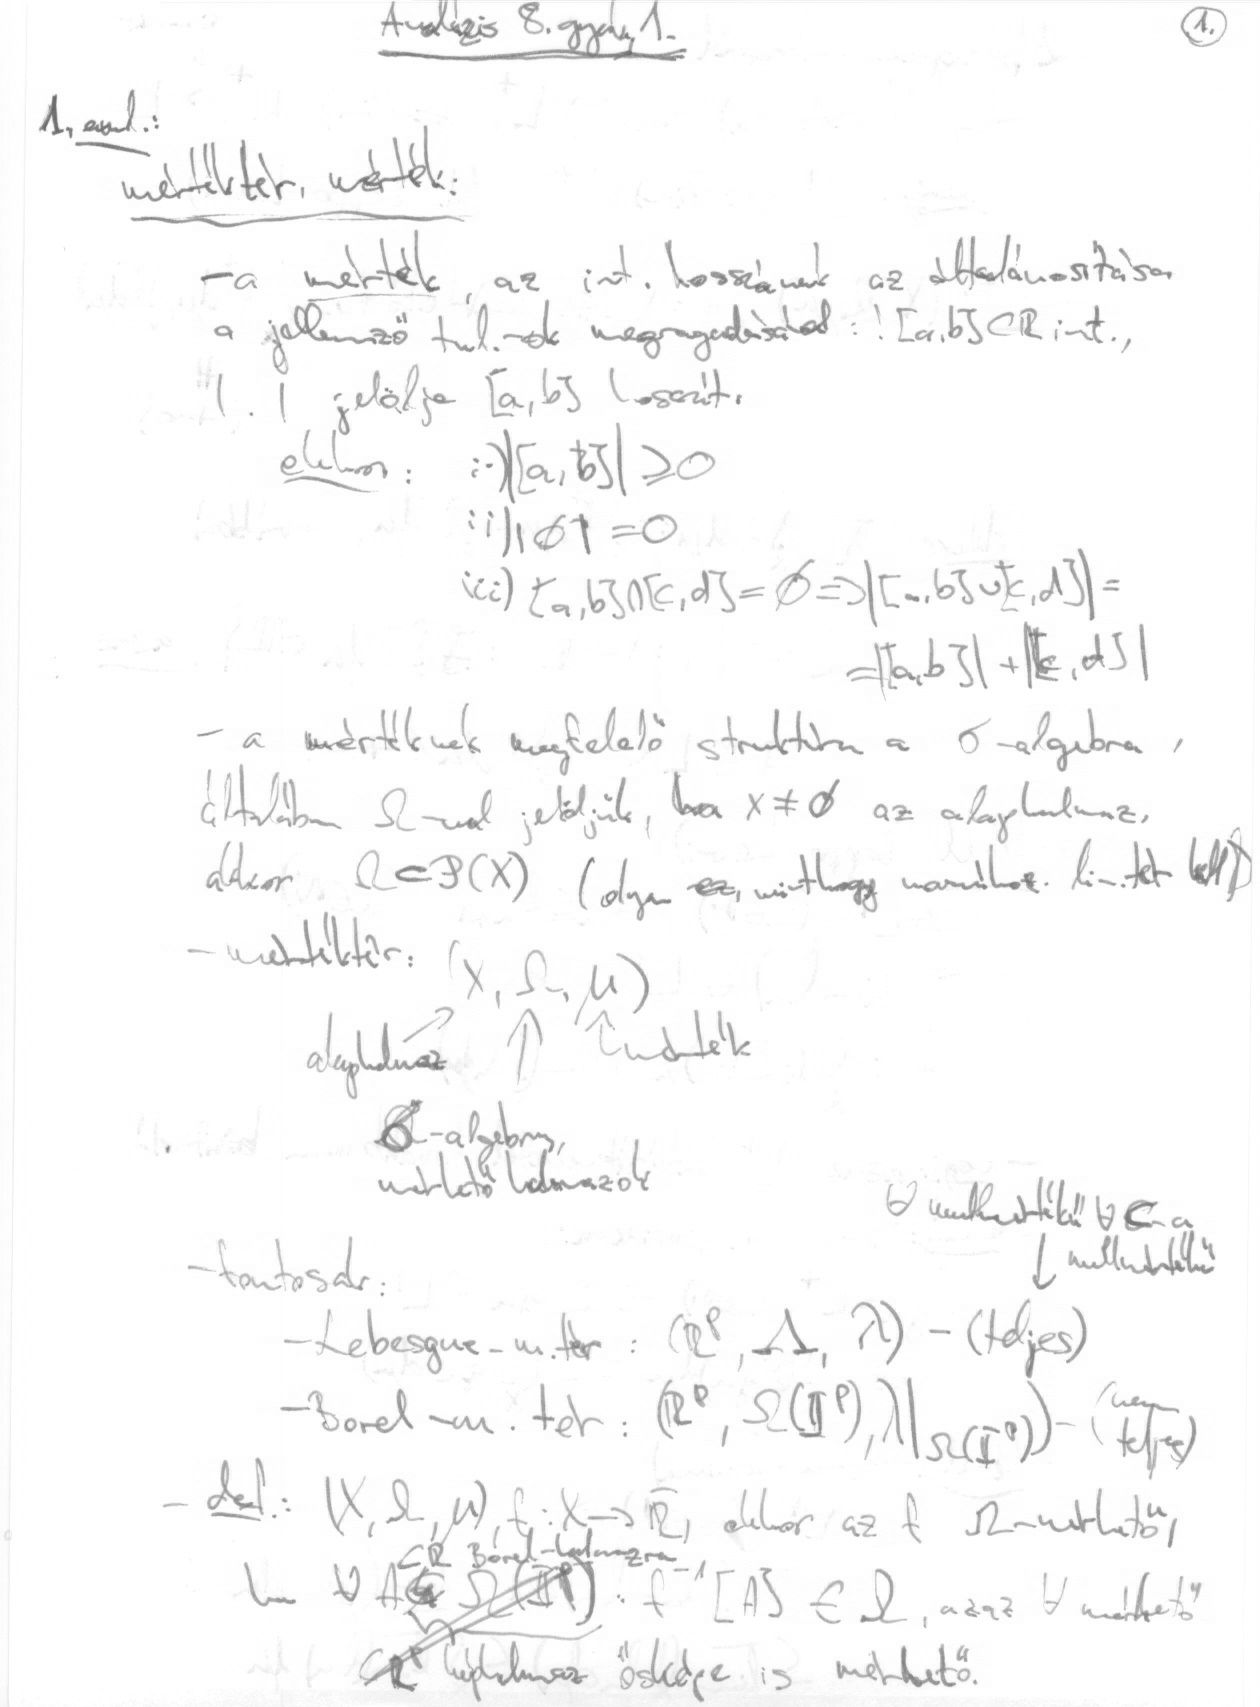 Analízis 8. gyak, 1.
1.
1. anal.:
mértéktér, mérték:
- a mérték, az int. hosszának az általánosítása
a jellemző tul.-ok megragadásával : ! [a,b] ⊂ ℝ int.,
| . | jelölje [a,b] hosszát.
ekkor: i.) |[a,b]| ≥ 0
ii) |∅| = 0
iii) [a,b]∩[c,d] = ∅ ⇒ |[a,b]∪[c,d]| =
= |[a,b]| + |[c,d]|
- a mértéknek megfelelő struktúra a σ-algebra,
általában Ω-val jelöljük, ha X ≠ ∅ az alaphalmaz,
akkor Ω ⊂ P(X) (olyan ez, minthogy normához lin. tér kell)
- mértéktér: (X, Ω, μ)
alaphalmaz mérték
σ-algebra,
mérhető halmazok
∀ nullmértékű ∀ ⊂-a
↓ nullmértékű
- fontosak:
- Lebesgue-m.tér : (ℝᵖ, Λ, λ) - (teljes)
- Borel-m.tér : (ℝᵖ, Ω(𝕀ᵖ), λ|Ω(𝕀ᵖ)) - (nem
teljes)
- def.: (X, Ω, μ), f: X → ℝ̄, ekkor az f Ω-mérhető,
⊂ℝ Borel-halmazra
ha ∀ A Ω(𝕀ᵖ) : f⁻¹[A] ∈ Ω, azaz ∀ mérhető
⊂ℝᵖ képhalmaz ősképe is mérhető.